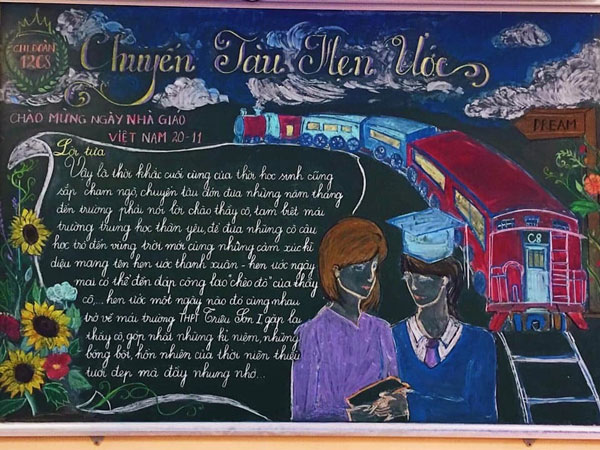 CHI ĐOÀN
12C8
Chuyến Tàu Hẹn Ước
CHÀO MỪNG NGÀY NHÀ GIÁO
VIỆT NAM 20-11
DREAM
C8
Lời tựa
Vậy là thời khắc cuối cùng của thời học sinh cũng
sắp chạm ngõ, chuyến tàu đón đưa những năm tháng
đến trường phải nói lời chào thầy cô, tạm biệt mái
trường trung học thân yêu, để đưa những cô cậu
học trò đến vùng trời mới cùng những cảm xúc kì
diệu mang tên hẹn ước thanh xuân - hẹn ước ngày
mai có thể đền đáp công lao "chèo đò" của thầy
cô,... hẹn ước một ngày nào đó cùng nhau
trở về mái trường THPT Triệu Sơn I, gặp lại
thầy cô, góp nhặt những kỉ niệm, những
bồng bột, hồn nhiên của thời niên thiếu
tươi đẹp mà đầy nhung nhớ...